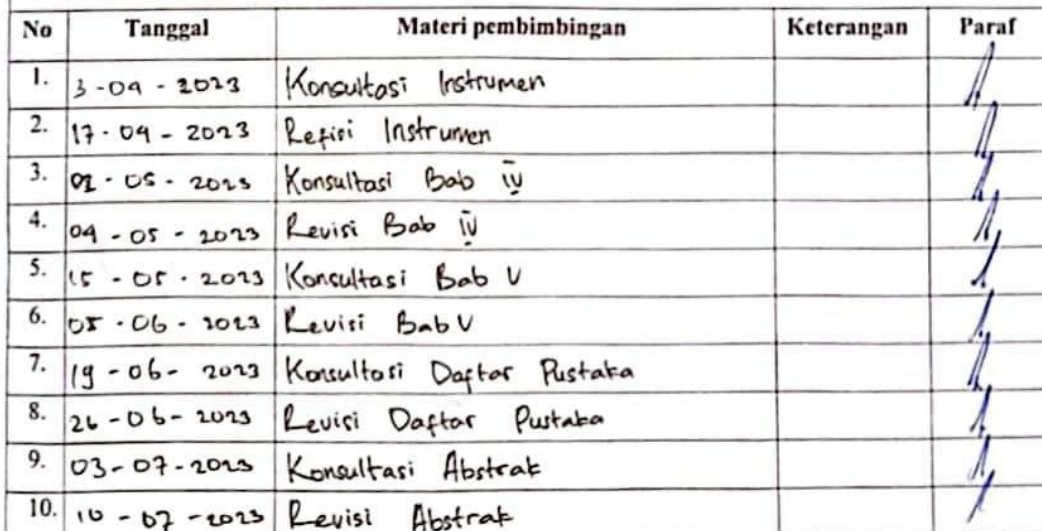 No Tanggal Materi pembimbingan Keterangan Paraf
1. 3-04-2023 Konsultasi Instrumen
2. 17-04-2023 Refisi Instrumen
3. 02-05-2023 Konsultasi Bab IV
4. 04-05-2023 Revisi Bab IV
5. 15-05-2023 Konsultasi Bab V
6. 05-06-2023 Revisi Bab V
7. 19-06-2023 Konsultasi Daftar Pustaka
8. 26-06-2023 Revisi Daftar Pustaka
9. 03-07-2023 Konsultasi Abstrak
10. 10-07-2023 Revisi Abstrak